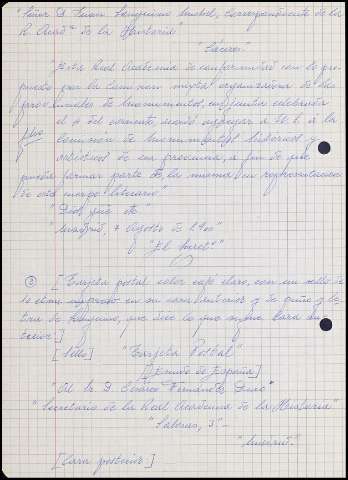 "Señor D. Juan Sanguino Michel, Correspondiente de la
R. Acadª de la Historia"
"Cáceres"
"Esta Real Academia de conformidad con lo pro-
puesto por la Comision mixta organizadora de las
provinciales de Monumentos, en junta celebrada
el 4 del corriente, acordó agregar a V. S. á la
Comisión de Monumentos históricos y
artísticos de esa provincia, a fin de que
pueda formar parte de la misma en representacion
de este cuerpo literario"
"Dios gue etc"
"Madrid, 7 Agosto de 1900"
"El Secret°"
[Tarjeta postal color café claro, con un sello de
lo mismo impreso en su cara anterior y de puño y le-
tra de Sanguino, que dice lo que sigue. Cara an-
terior.]
[Sello] "Tarjeta Postal"
[Escudo de España]
"Al Sr. D. Cesáreo Fernández Duro"
"Secretario de la Real Academia de la Historia"
"Sabonas, 3"-
"Madrid".
[Cara posterior.]